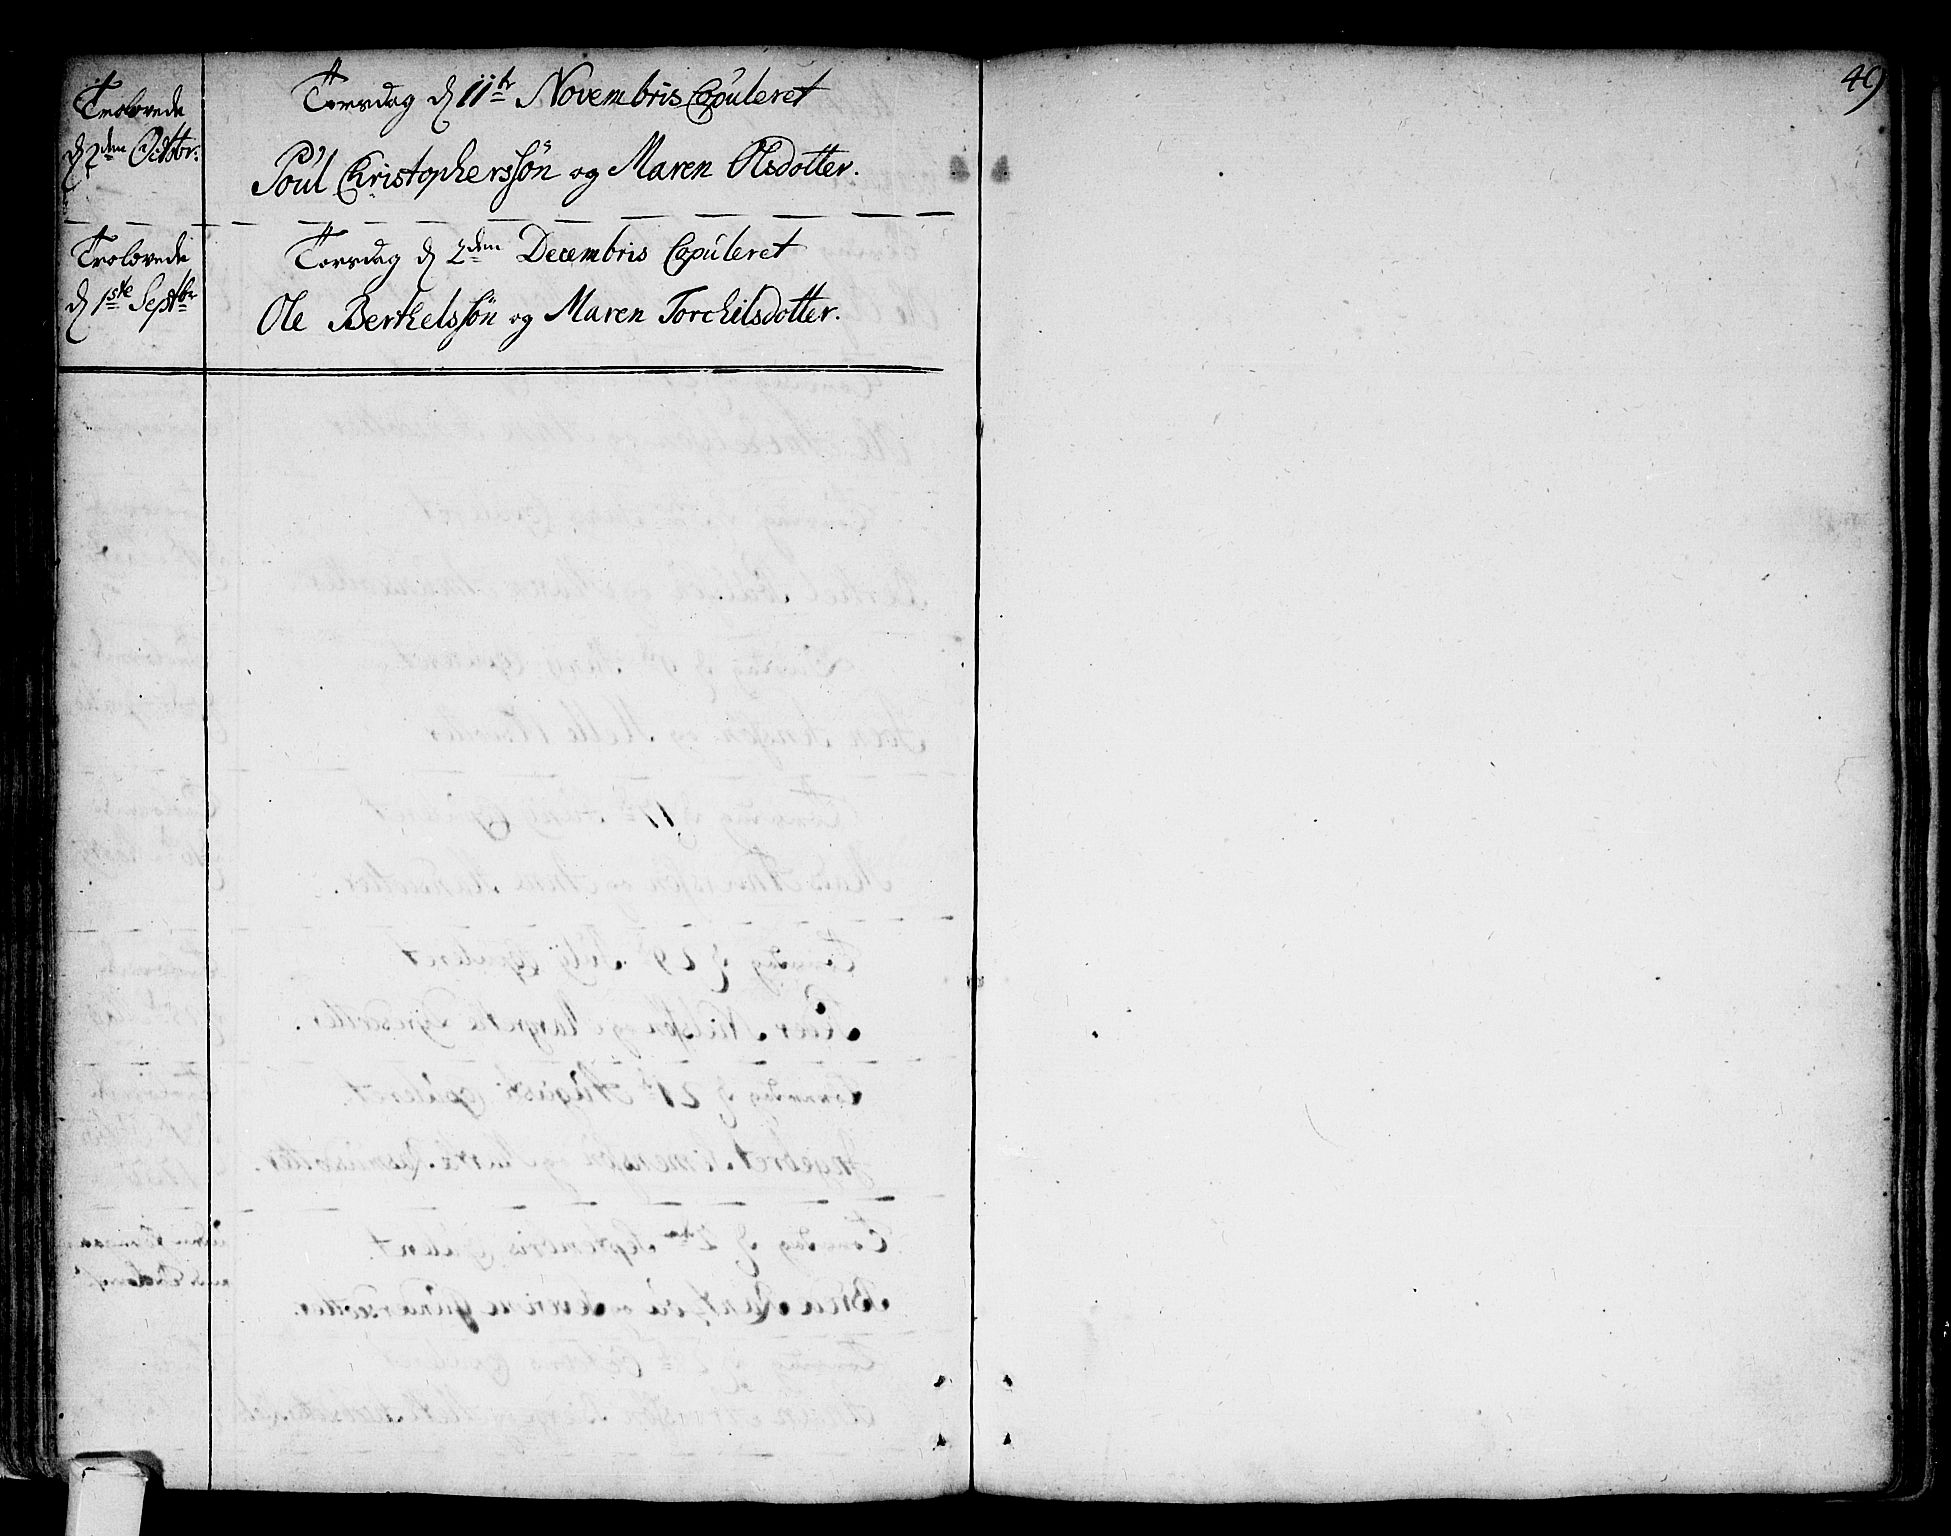 49
Trolovede
d 2den Octobr:
Torsdag d 11te Novembris Copuleret
Poul Christopherssön og Maren Olsdotter.
Trolovede
d 1ste Septbr
Torsdag d 2den Decembris Copuleret
Ole Berthelssön og Maren Torchilsdotter.